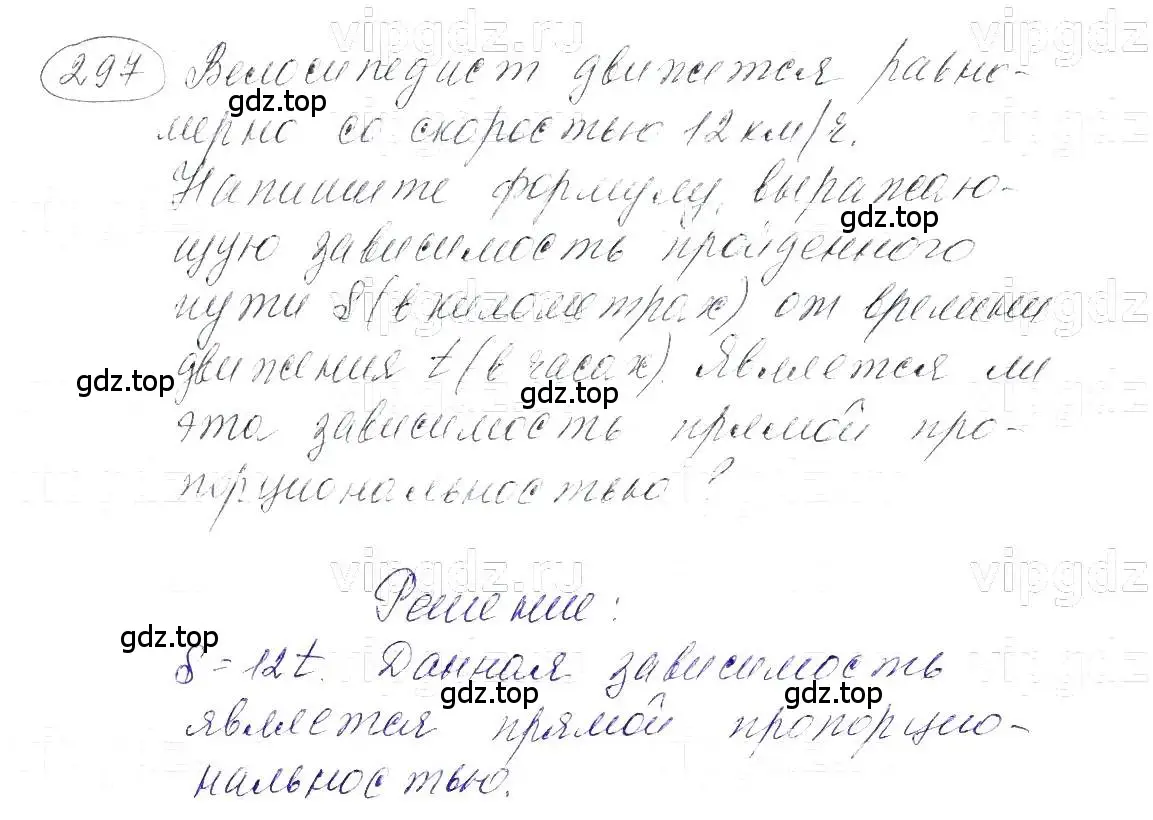 vipgdz.ru vipgdz
297 Велосипедист движется равно-
gdz.top
мерно со скоростью 12 км/ч.
Напишите формулу, выражаю-
gdz.top
щую зависимость пройденного
пути S (в километрах) от времени
движения t (в часах). Является ли
gdz.top gdz.top
эта зависимость прямой про-
порциональностью?
vipgdz.ru vipgdz
Решение:
gdz.top
S = 12t. Данная зависимость
gdz.top gdz.top
является прямой пропорцио-
нальностью.